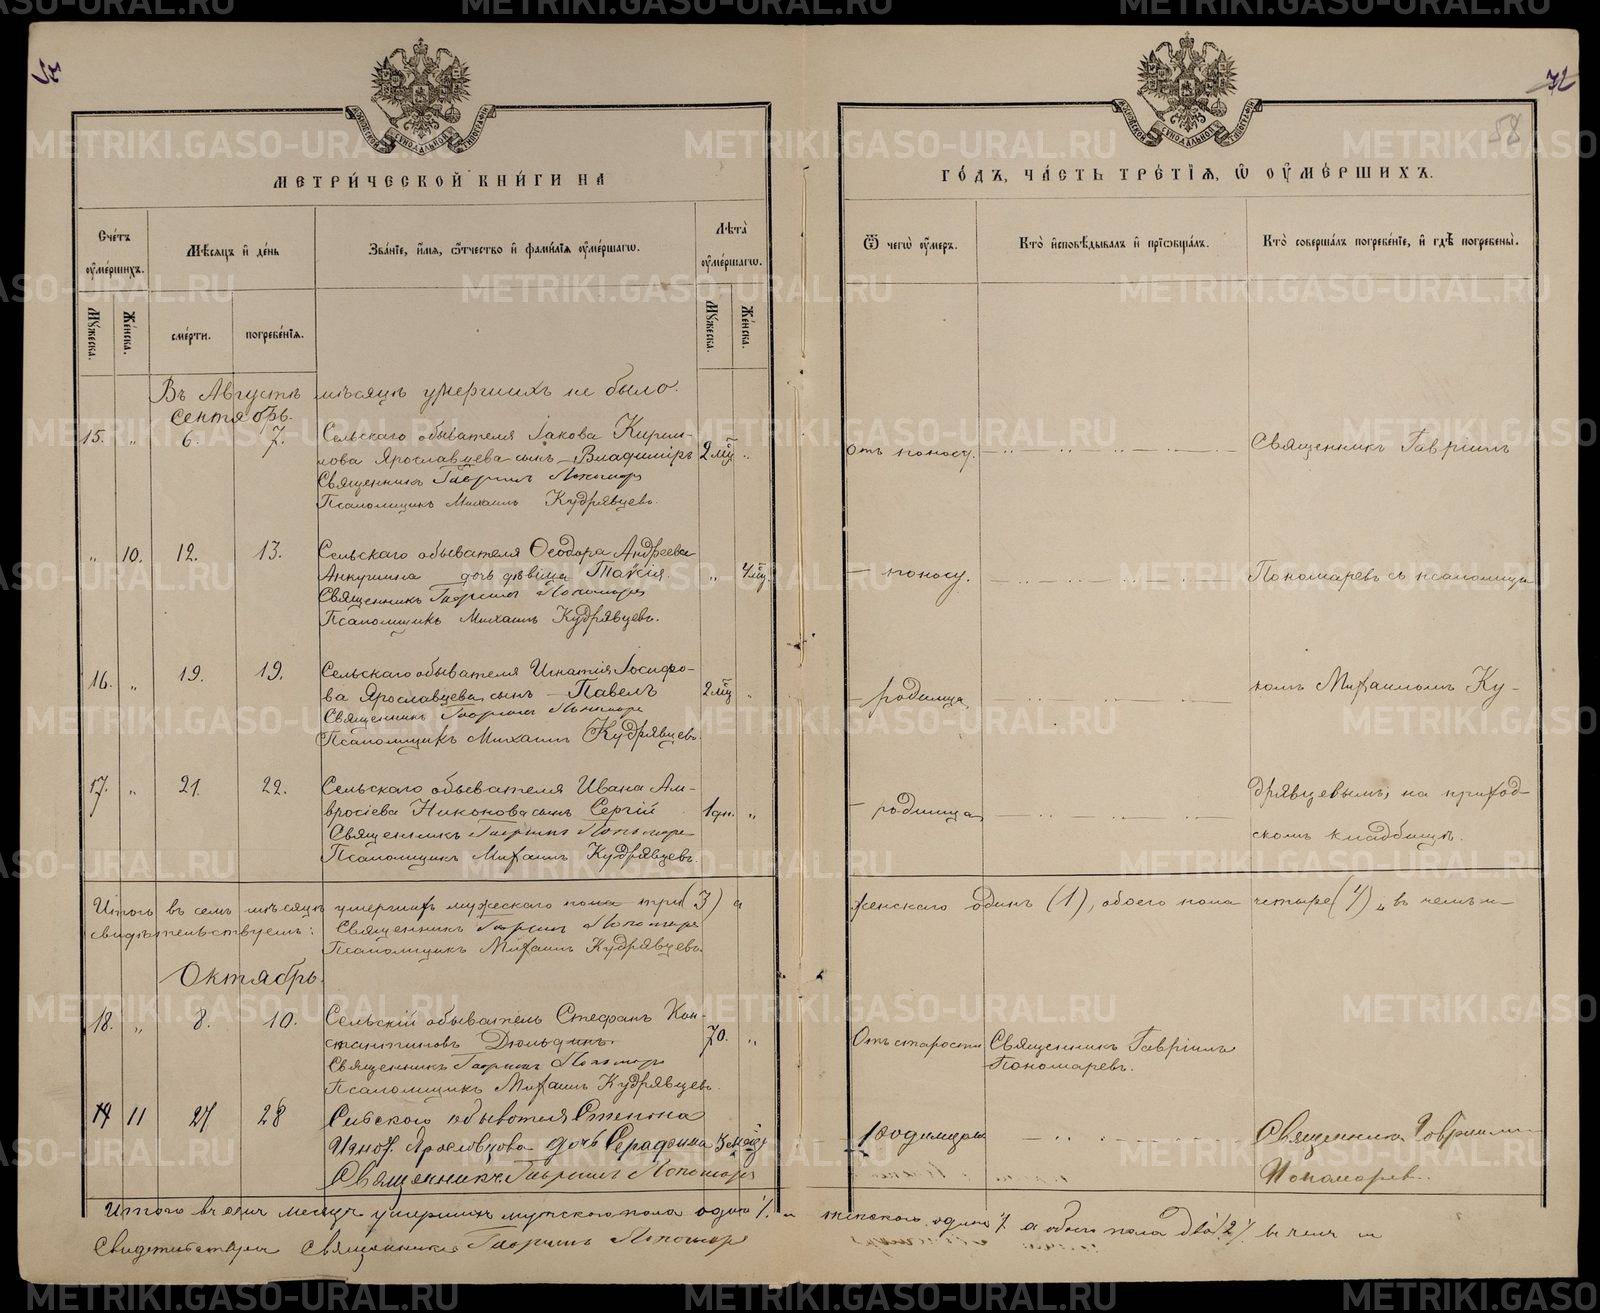 МЕТРИ́ЧЕСКОЙ КНИ́ГИ НА
Сче́тъ ᲂу҆ме́ршихъ.
Мѣ́сѧцъ и҆ де́нь
Зва́нїе, и҆́мѧ, ѻ҆́тчество и҆ фами́лїѧ ᲂу҆ме́ршагѡ.
Лѣ́та ᲂу҆ме́ршагѡ.
Мꙋ́жеска.
Же́нска.
сме́рти.
погребе́нїѧ.
Мꙋ́жеска.
Же́нска.
Въ Августѣ мѣсяцѣ умершихъ не было.
Сентябрь.
15. „ 6. 7. Сельскаго обывателя Іакова Кирил-
лова Ярославцева сынъ – Владиміръ 2 мѣц „
Священникъ Гавріилъ Пономарев
Псаломщикъ Михаилъ Кудрявцевъ.
„ 10. 12. 13. Сельскаго обывателя Ѳеодора Андреева
дочь дѣвица Таисія. „ 4 мц
Священникъ Гавріилъ Пономарев
Псаломщикъ Михаилъ Кудрявцевъ.
16. „ 19. 19. Сельскаго обывателя Игнатія Іосифо-
ва Ярославцева сынъ – Павелъ 2 мц „
Священникъ Гавріилъ Пономарев
Псаломщикъ Михаилъ Кудрявцевъ.
17. „ 21. 22. Сельскаго обывателя Ивана Ам-
вросіева Никонова сынъ Сергій 1 дн. „
Священникъ Гавріилъ Пономарев
Псаломщикъ Михаилъ Кудрявцевъ.
Итого въ семъ мѣсяцѣ умершихъ мужескаго пола три (3) а
свидѣтельствуемъ: Священникъ Гавріилъ Пономарев
Псаломщикъ Михаилъ Кудрявцевъ.
Октябрь.
18. „ 8. 10. Сельскій обыватель Стефанъ Кон-
стантиновъ Дюльдинъ. 70. „
Священникъ Гавріилъ Пономарев
Псаломщикъ Михаилъ Кудрявцевъ.
11 27 28 Сельскаго обывателя
Ярославцова дочь Серафима
Священникъ Гавріилъ Пономарев
Итого въ семъ месяце умершихъ мужскаго пола одинъ 1. и
Свидетельствуем Священникъ Гавріилъ Пономарев
72
58
ГО́ДЪ, ЧА́СТЬ ТРЕ́ТЇѦ, Ѡ҆ ОУ҆МЕ́РШИХЪ.
Ѿ чегѡ̀ ᲂу҆́меръ.
Кто̀ и҆сповѣ́дывалъ и҆ прїѡбща́лъ.
Кто̀ соверша́лъ погребе́нїе, и҆ гдѣ̀ погребены̀.
Отъ поносу. Священникъ Гавріилъ
– поносу. Пономаревъ съ псаломщи-
– родимца комъ Михаиломъ Ку-
– родимца дрявцевымъ, на приход-
скомъ кладбищѣ.
женскаго одинъ (1), обоего пола четыре (4), въ чемъ и
Отъ старости Священникъ Гавріилъ
Пономаревъ.
родимцом Священникъ Гавриилъ
Пономарев.
женскаго одинъ 1 а обоего пола два 2 въ чем и
METRIKI.GASO-URAL.RU